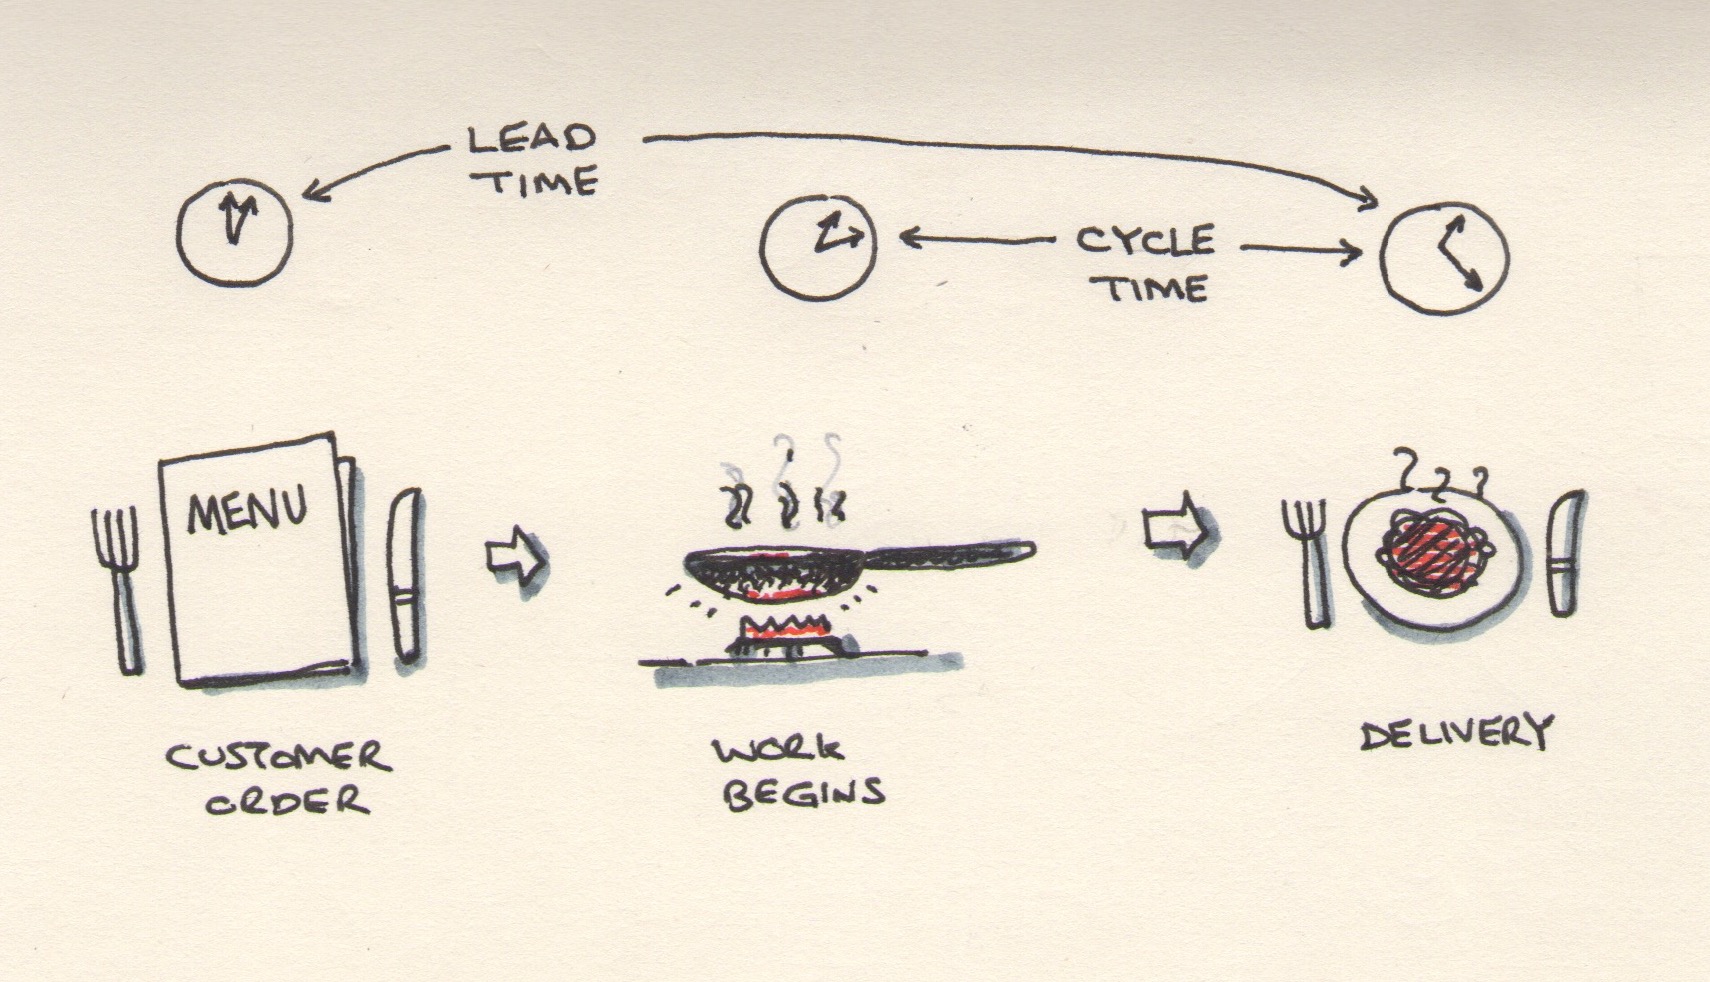 LEAD
TIME
CYCLE
TIME
MENU
CUSTOMER
ORDER
WORK
BEGINS
DELIVERY